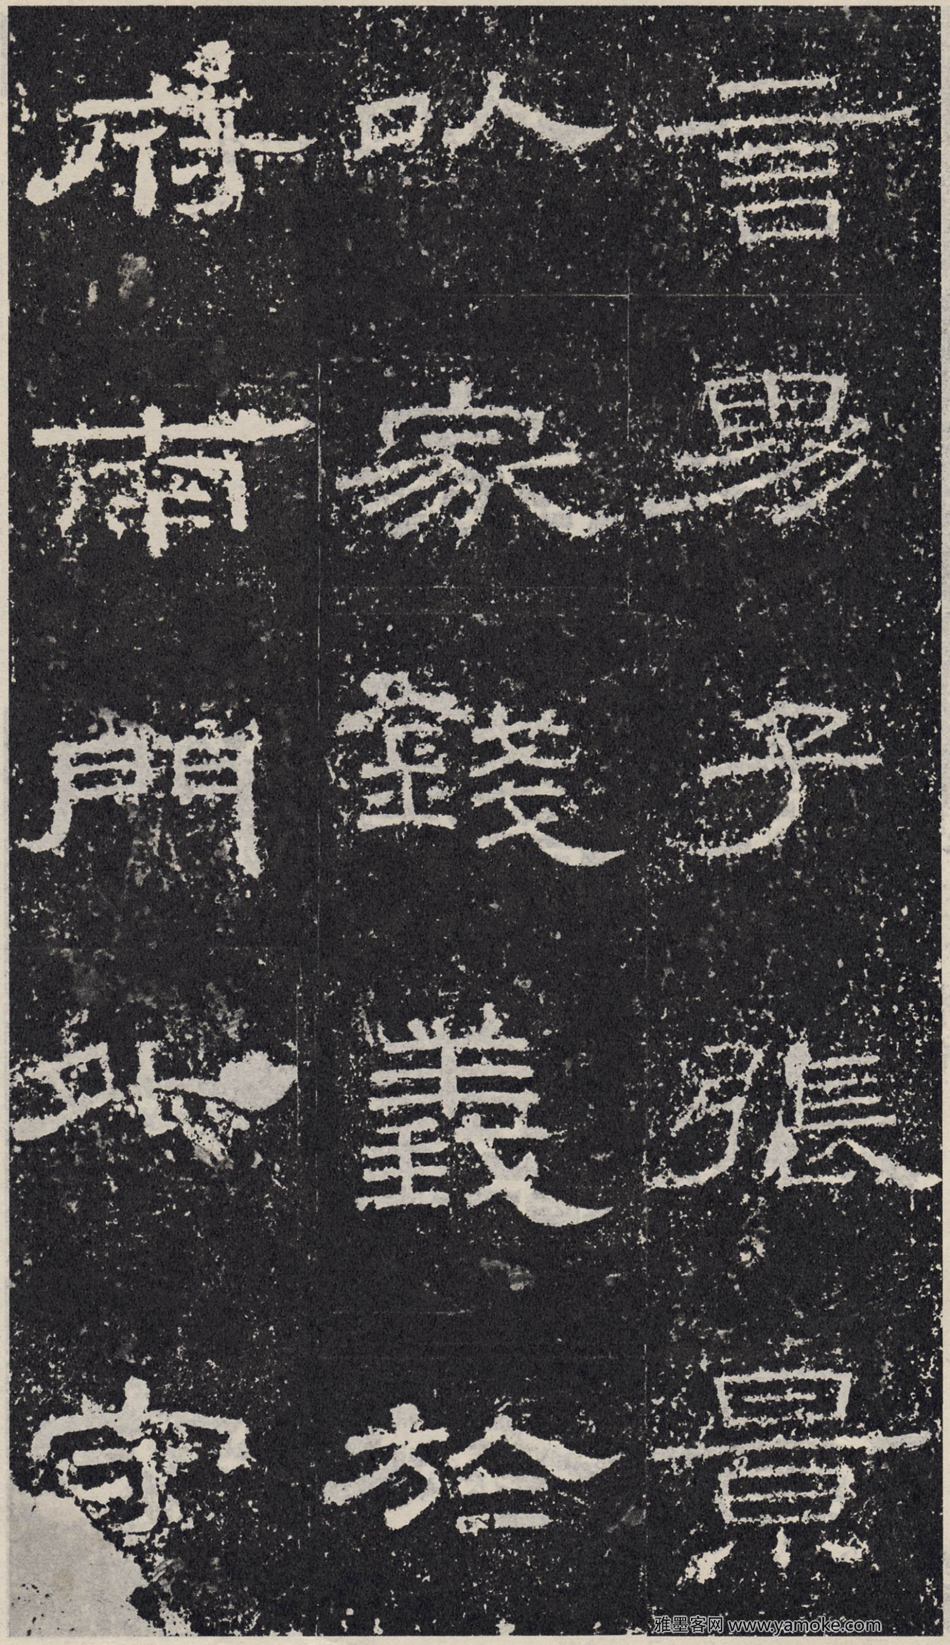 言男子張景
以家錢義於
府南門外守
雅墨客网 www.yamoke.com